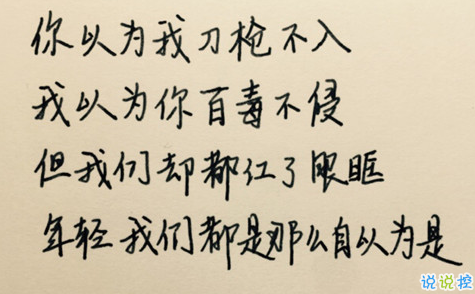 你以为我刀枪不入
我以为你百毒不侵
但我们却都红了眼眶
年轻我们都是那么自以为是
说说控